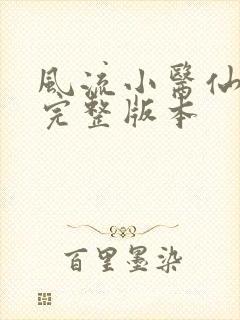 風流小醫仙
完整版本
百里墨染